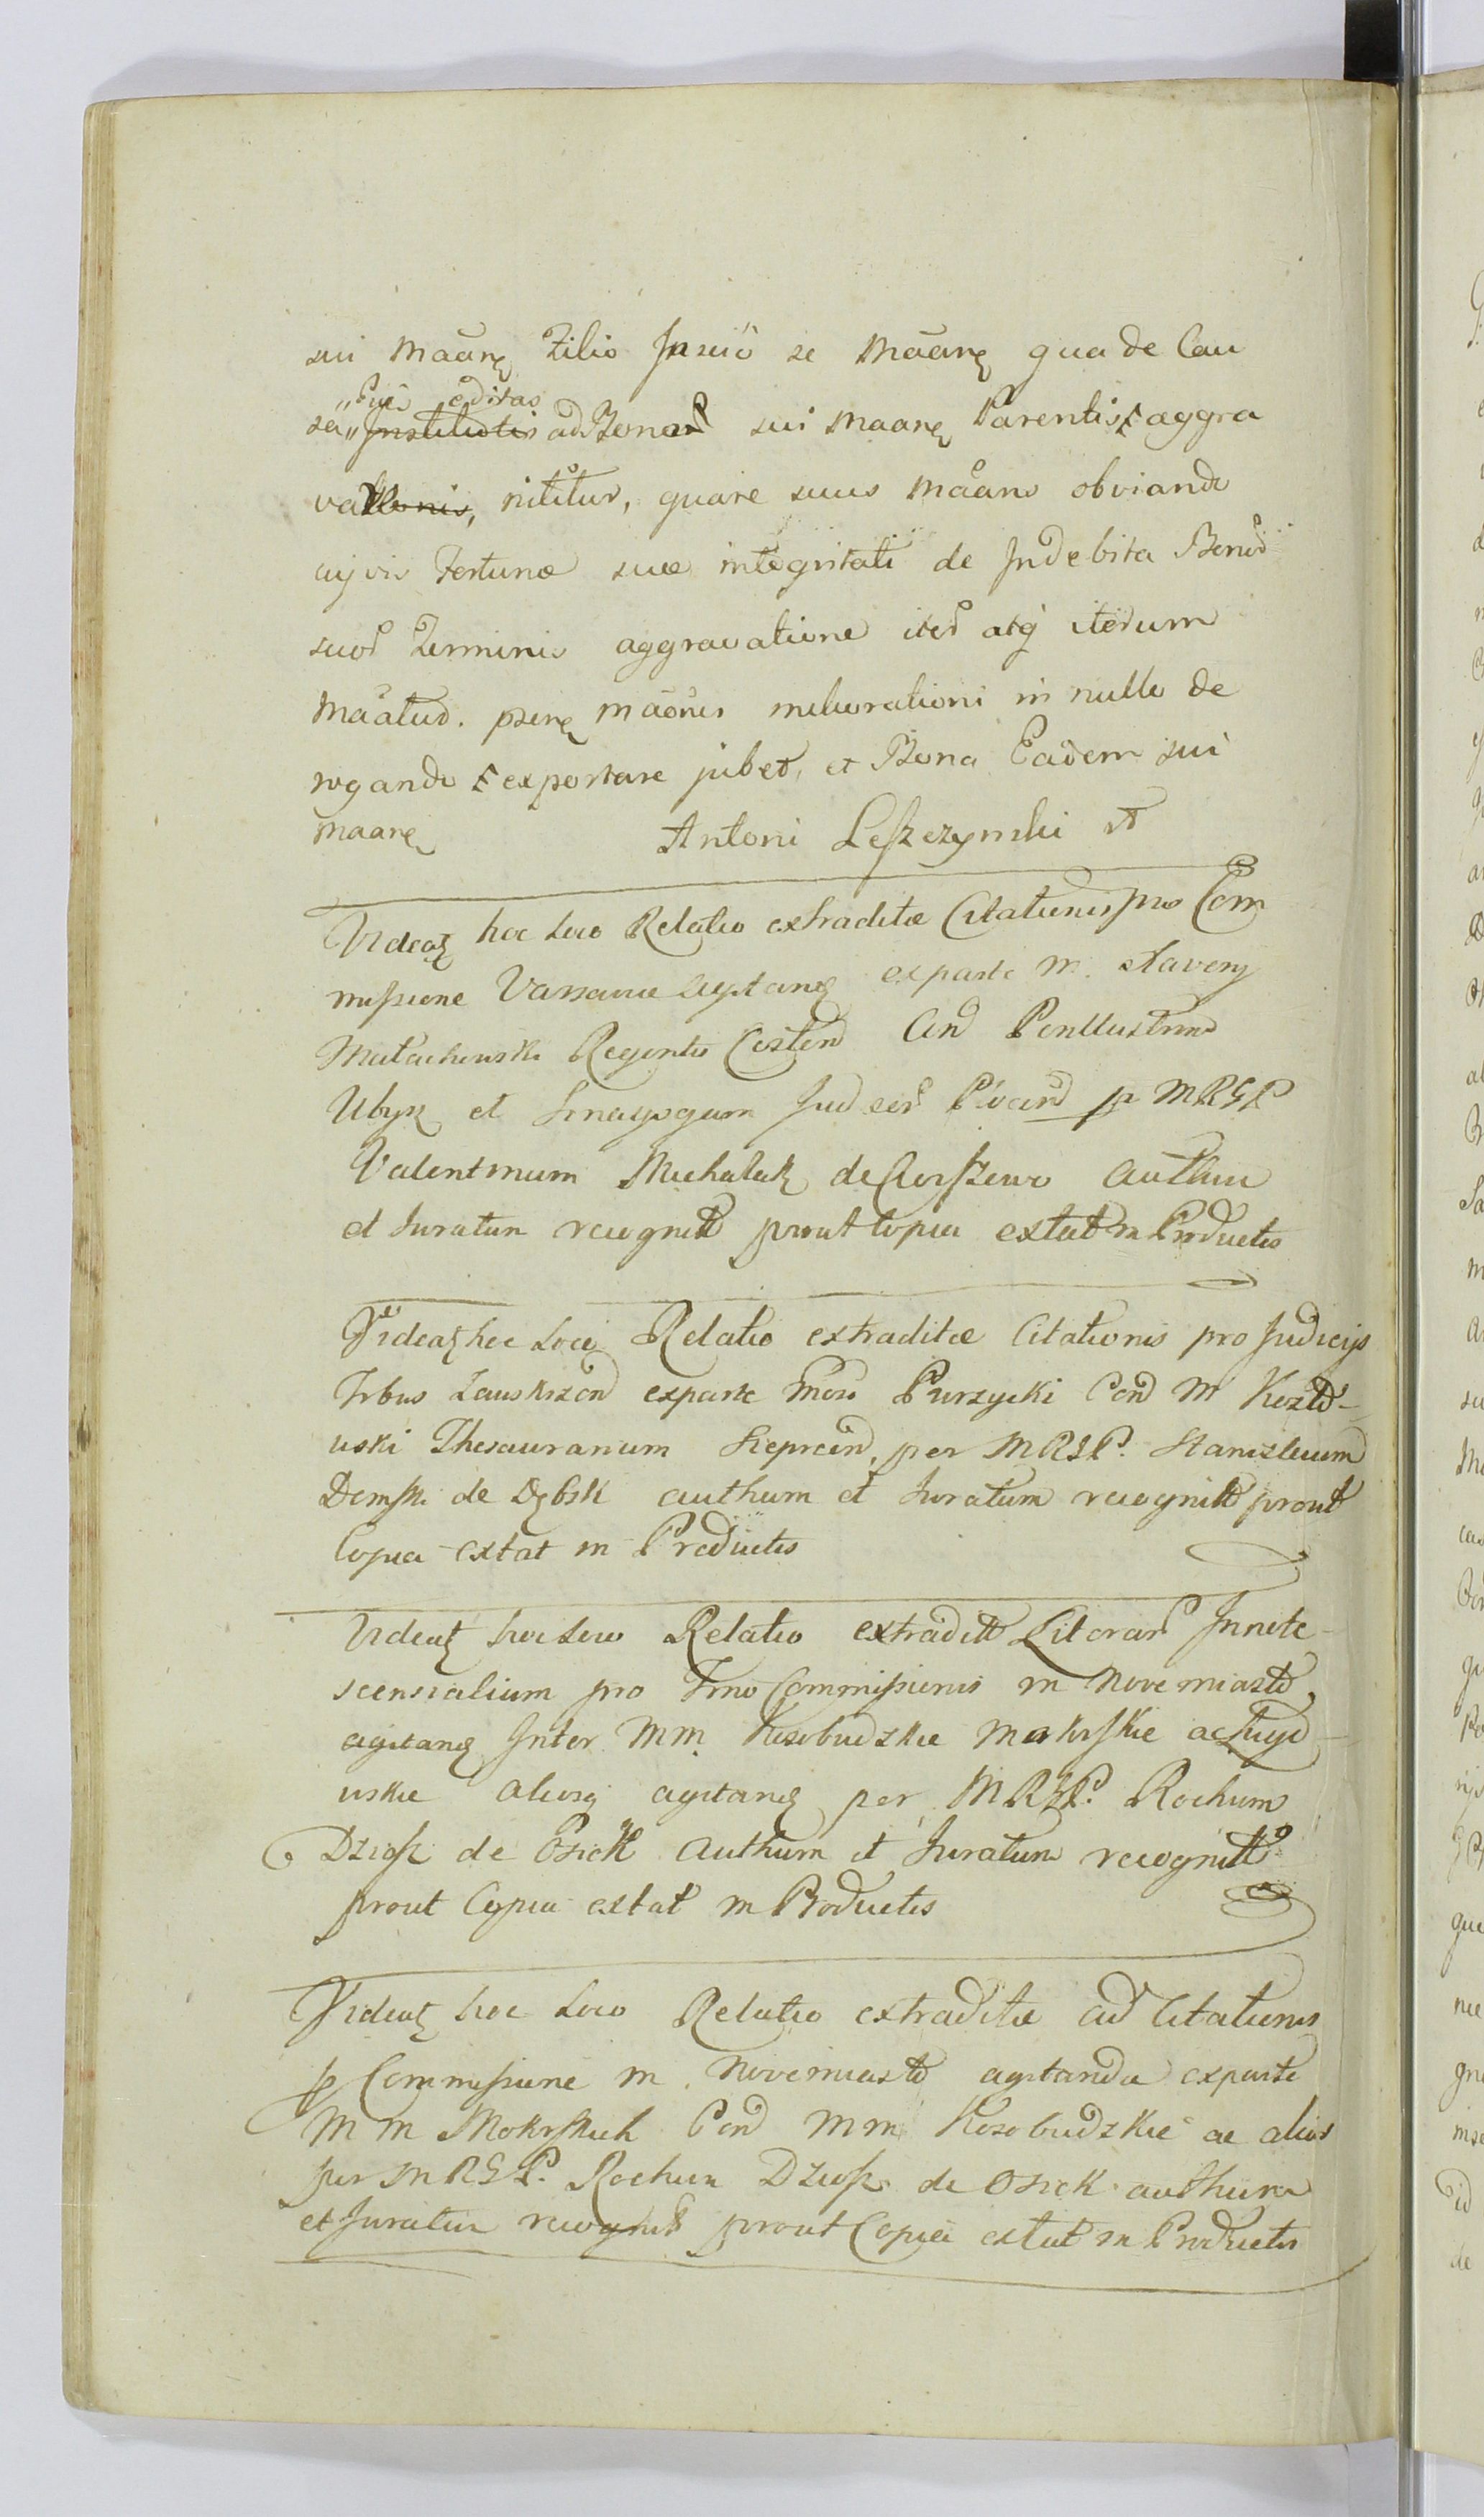 sui Maãnẽ Filio Inscio se Maãnẽ qua de Cau
editas
sa, Institutis ad Bonor sui Maanẽ Parentis aggra
vationis, nititur, quare suus Maans obviando
cujvis Fortunæ suæ integritati de Indebita Bonor
suor Terminis aggravatione iter atq iterum
Maatur. psenẽ maõnis meliorationi in nullo de
rogando exportare jubet, et Bona Eadem sui
Maanẽ Antoni Leszczynski
Videatz hoc Loco Relatio extraditæ Citationis pro Com
missione Varsaviæ agitanẽ ex parte M. Xavery
Małachowski Regentis Costen Con
et Sinagogam Judeor per MRGP
Valentinum Michalak de authum
et Juratum recognitt prout Copia extat in Productis
Videatz hoc Loco Relatio extraditæ Citationis pro Judicijs
Trbus Zawskrzen ex parte Mosi Purzycki Con M Kozło-
wski Thesaurarium Sieprcen, per MRGP. Stanisleum
Demski de Dębsk authum et Juratum recognitt prout
Copia extat in Productis
Videatz hoc Loco Relatio extraditt Literar Innote-
scensialium pro Trno Commissionis in Novemiasto
agitanẽ Inter MM. Kosobudzkie Mokrskie ac
wskie aliosq agitanẽ per MRGP. Rochum
Dziosz de Osiek authum et Juratum recognitt
prout Copia extat in Productis
Videatz hoc Loco Relatio extraditæ ad Citationis
p Commissione in Novemiasto agitanda ex parte
MM Mokrskich Con MM Kosobudzkie ac alios
per MRGP. Rochum Dziosz de Osiek authum
et Juratum recognit prout Copia extat in Productis